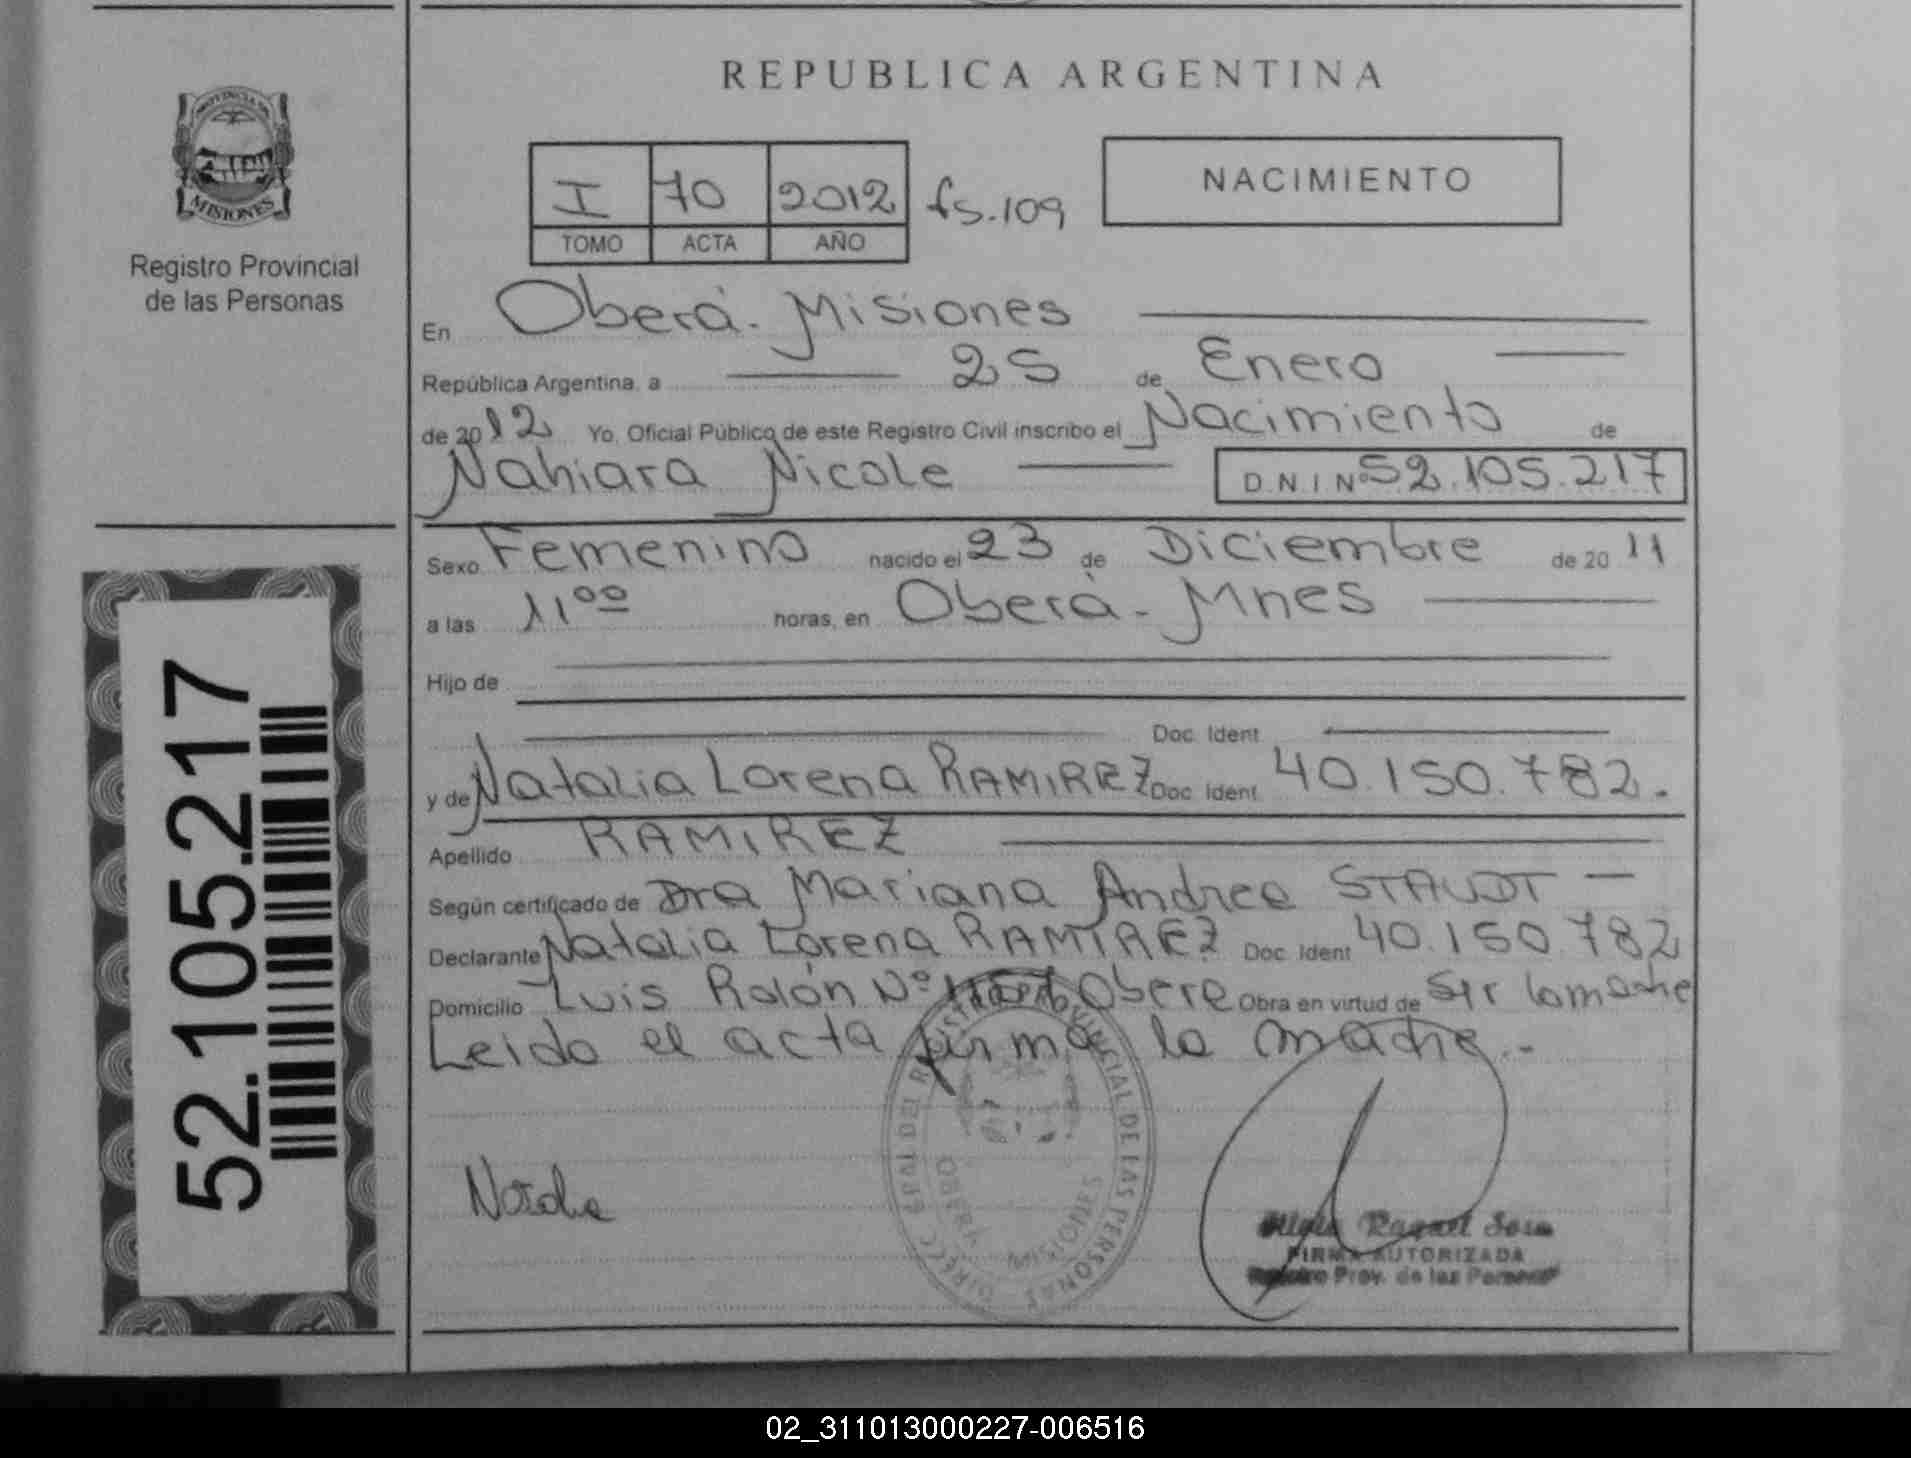 REPUBLICA ARGENTINA
PROVINCIA DE
MISIONES
Registro Provincial
de las Personas
I 70 2012 fs.109
TOMO ACTA AÑO
NACIMIENTO
En Oberá - Misiones
República Argentina, a 25 de Enero
de 2012 Yo, Oficial Público de este Registro Civil inscribo el Nacimiento de
Nahiara Nicole D.N.I Nº 52.105.217
Sexo Femenino nacido el 23 de Diciembre de 2011
a las 11⁰⁰ horas, en Oberá - Mnes
Hijo de
Doc. Ident
y de Natalia Lorena RAMIREZ Doc. Ident 40.150.782.
Apellido RAMIREZ
Según certificado de Dra Mariana Andrea STAUDT
Declarante Natalia Lorena RAMIREZ Doc. Ident 40.150.782
Domicilio Luis Rolón Nº Obera Obra en virtud de ser la madre
Leido el acta firma la madre.-
52.105.217
DIRECC. GRAL DEL REGISTRO PROVINCIAL DE LAS PERSONAS
OBERA
MISIONES
Natalia
Raquel Sosa
FIRMA AUTORIZADA
Registro Prov. de las Personas
02_311013000227-006516